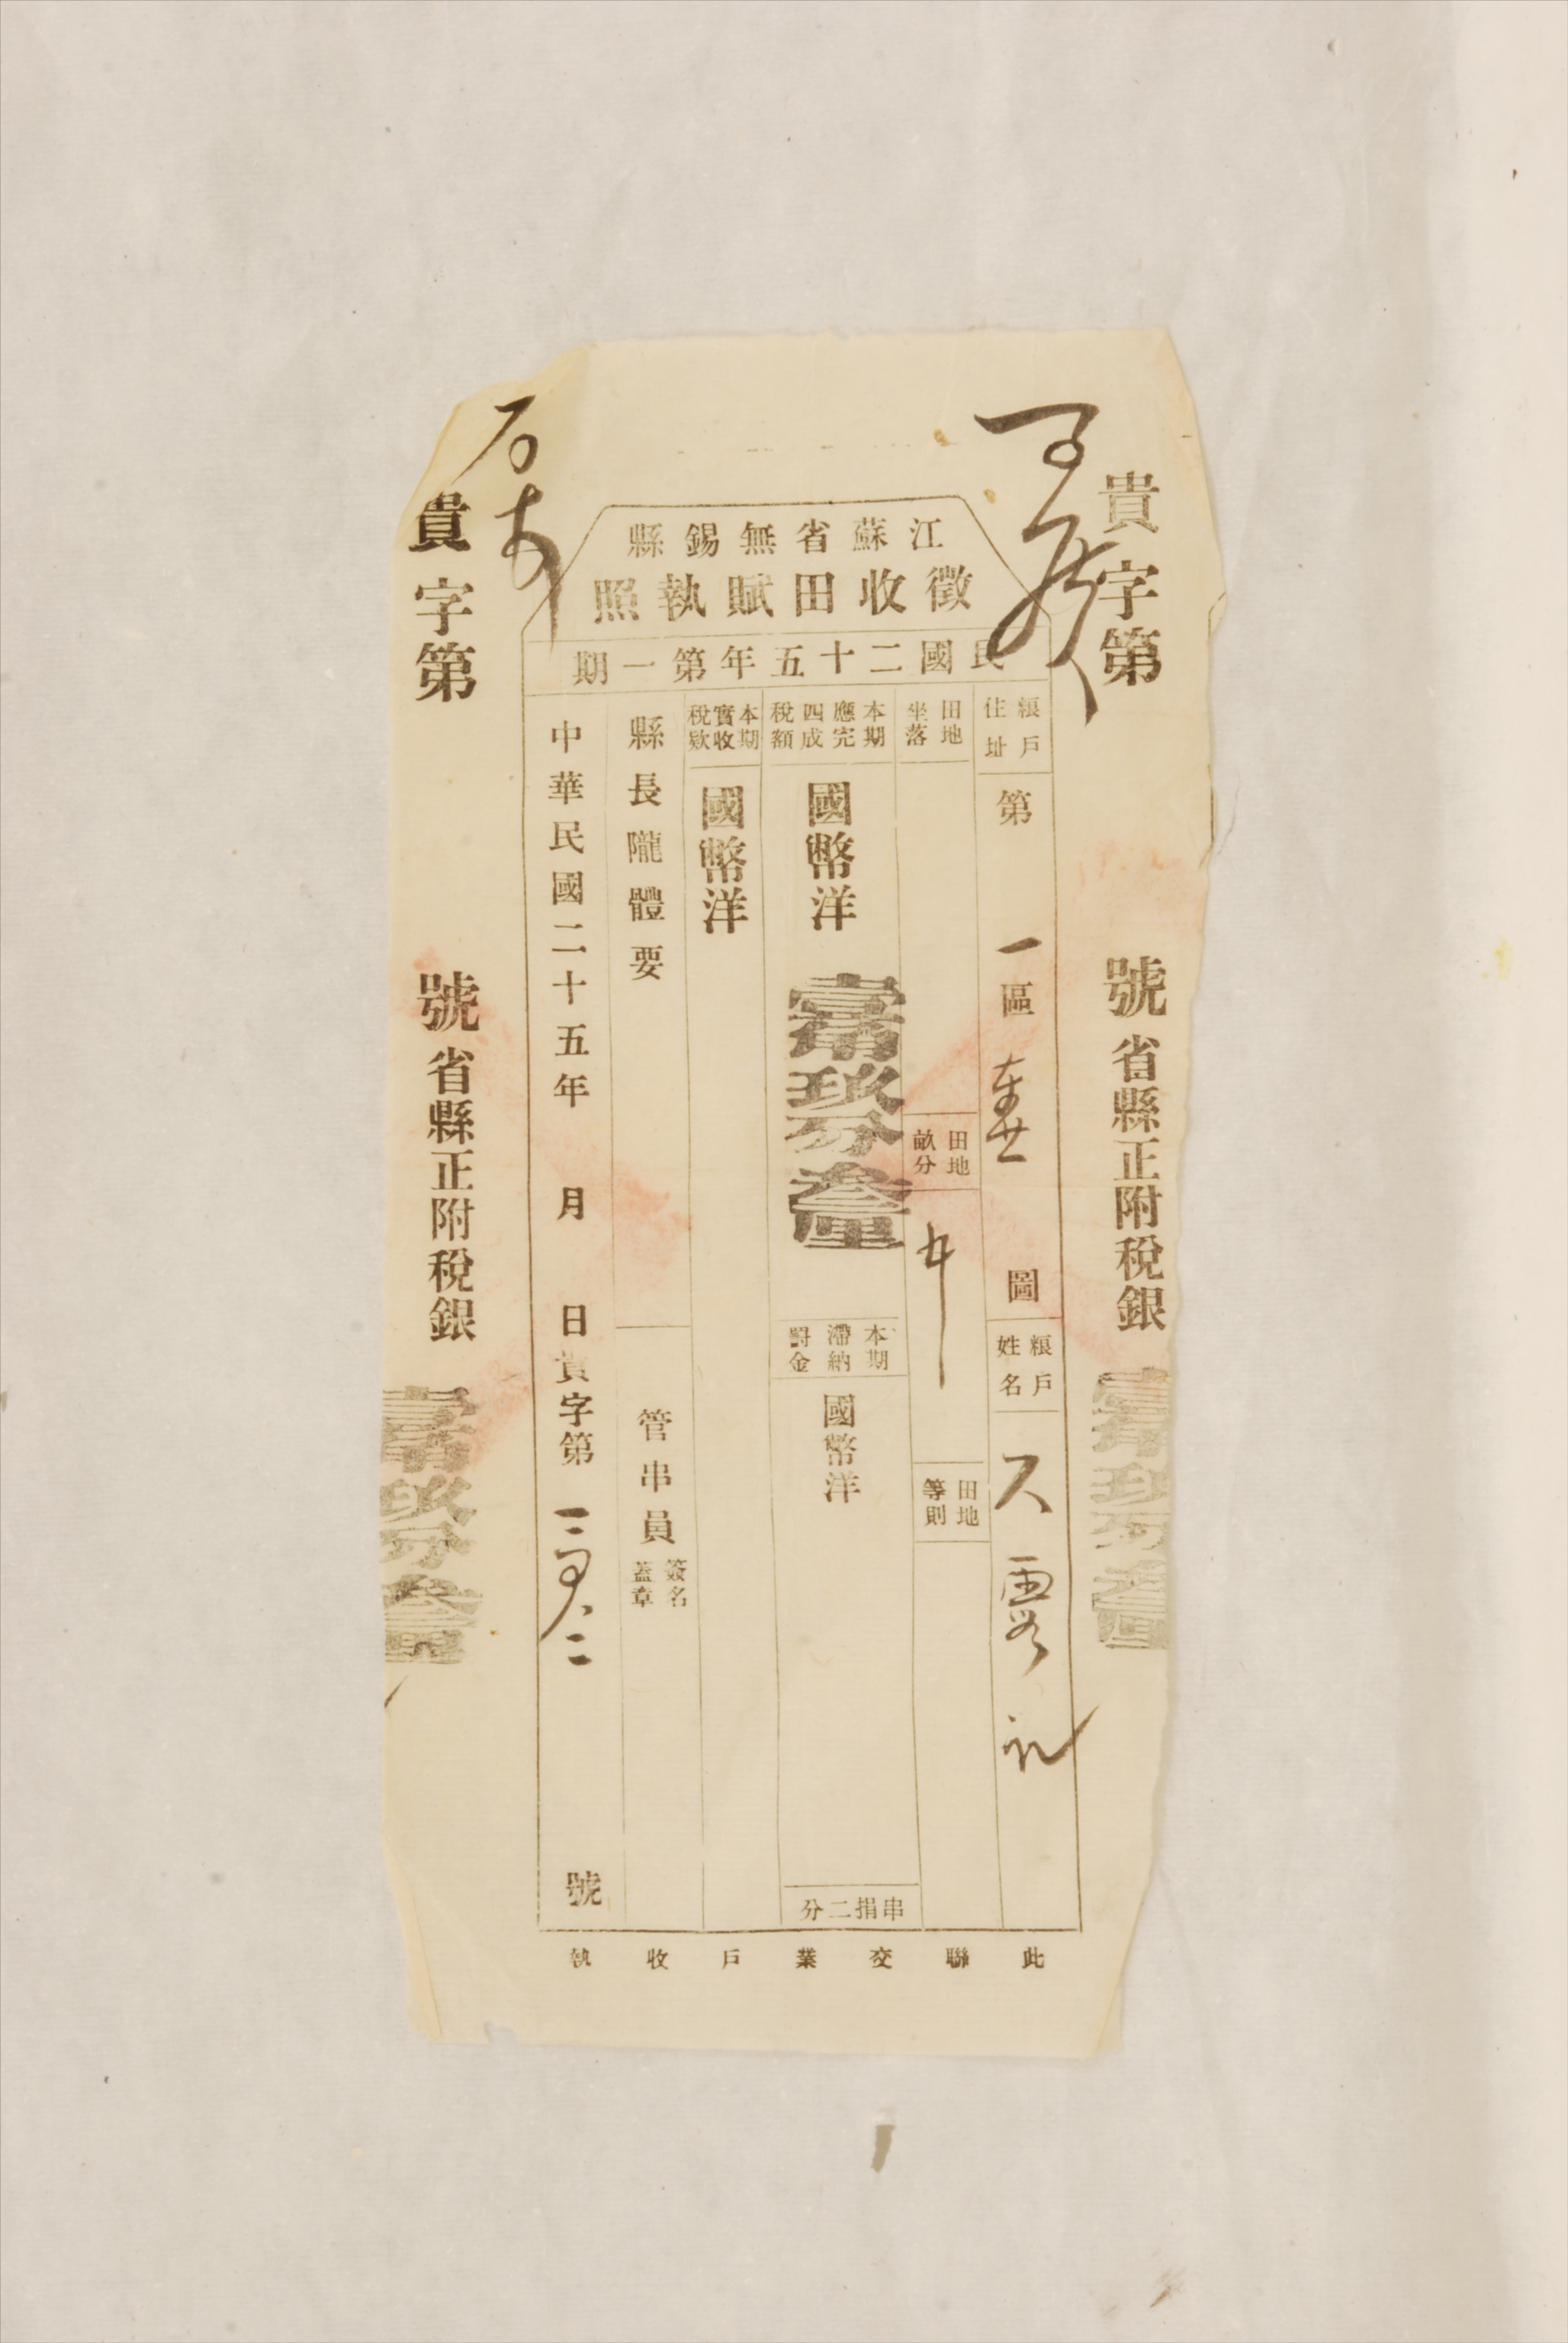 貴字第　號省縣正附稅銀壹角玖分叁厘
江蘇省無錫縣
徵收田賦執照
民國二十五年第一期
粮戶住址
第一區 圖
粮戶姓名
田地坐落
田地畝分
田地等則
本期應完四成稅額
國幣洋壹角玖分叁厘
本期滯納罰金
國幣洋
串捐二分
本期實收稅欵
國幣洋
縣長隴體要
管串員簽名蓋章
中華民國二十五年　月　日貴字第　號
此聯交業戶收執
貴字第　號省縣正附稅銀壹角玖分叁厘